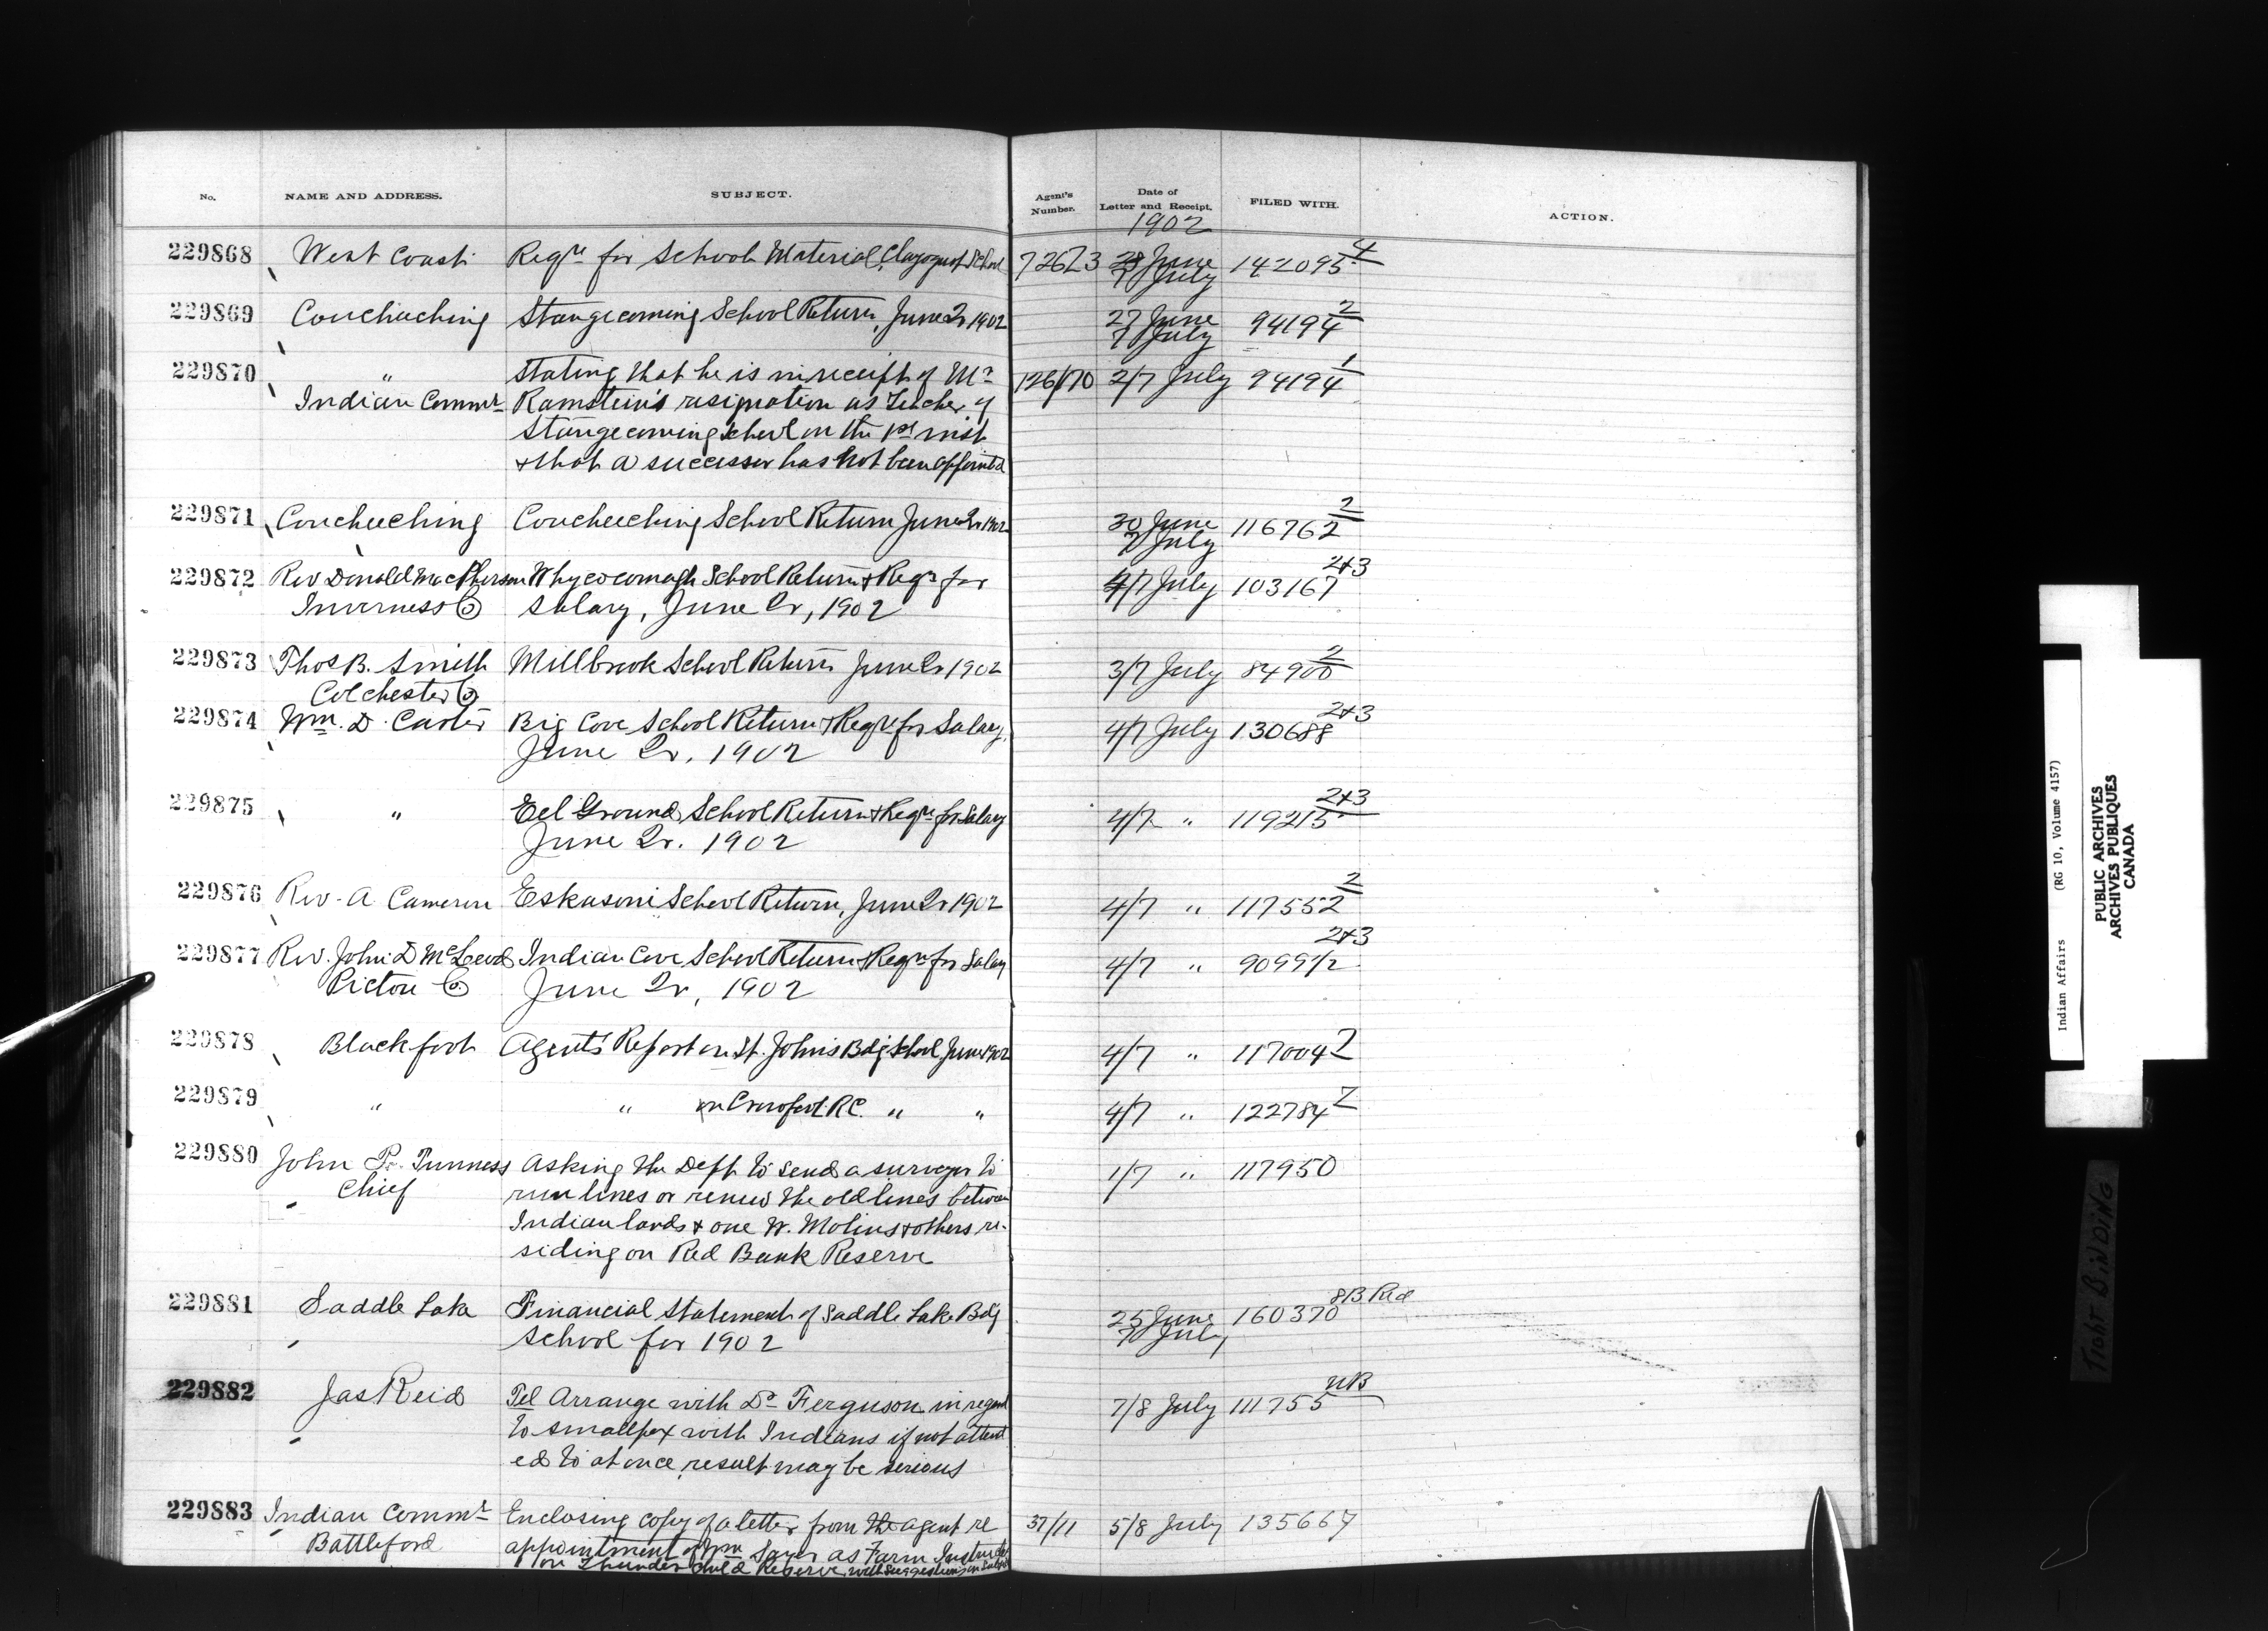 No. NAME AND ADDRESS. SUBJECT. Agent's Number. Date of Letter and Receipt. FILED WITH. ACTION.
1902
229868 West Coast Reqn for School Material, Clayoquot School 28 June 142095 4
7 July
229869 Couchiching Stangecoming School Return, June Qr 1902 27 June 94194 2
7 July
229870 " Stating that he is in receipt of Mr 126/170 2/7 July 94194 1
Indian Commr Ramstein's resignation as Teacher of
Stangecoming School on the 1st inst
& that a successor has not been appointed
229871 Coucheeching Coucheeching School Return June Qr 1902 30 June 116762 2
7 July
229872 Rev Donald MacPherson Whycocomagh School Return & Reqn for 4/7 July 103167 2&3
Inverness Co Salary, June Qr, 1902
229873 Thos B. Smith Millbrook School Return June Qr 1902 3/7 July 84900 2
Colchester Co
229874 Wm. D. Carter Big Cove School Return & Reqn for Salary, 4/7 July 130688 2&3
June Qr. 1902
229875 " Eel Ground School Return & Reqn for Salary 4/7 " 119215 2&3
June Qr. 1902
229876 Rev. A Cameron Eskasoni School Return, June Qr 1902 4/7 " 117552 2
229877 Rev. John D McLeod Indian Cove School Return & Reqn for Salary 4/7 " 2&3
Pictou Co June Qr, 1902
229878 Blackfoot Agent's Report on St. John's Bdg School, June 1902 4/7 " 117004 2
229879 " " on Crowfoot R.C. " " 4/7 " 122784 2
229880 John P. Tunness Asking the Dept to send a surveyor to 1/7 " 117950
Chief run lines or renew the old lines between
Indian lands & one W. Molins & others re-
siding on Red Bank Reserve
229881 Saddle Lake Financial Statement of Saddle Lake Bdg 25 June 160370 8B Red
School for 1902 7 July
229882 Jas Reid Tel Arrange with Dr Ferguson in regard 7/8 July 111755 NB
to smallpox with Indians if not attend
ed to at once, result may be serious
229883 Indian Commr Enclosing copy of a letter from the agent re 37/11 5/8 July 135667
Battleford appointment of Wm Sayer as Farm Instructor
on Thunder Child Reserve, with suggestions on
Indian Affairs (RG 10, Volume 4157)
PUBLIC ARCHIVES
ARCHIVES PUBLIQUES
CANADA
TIGHT BINDING